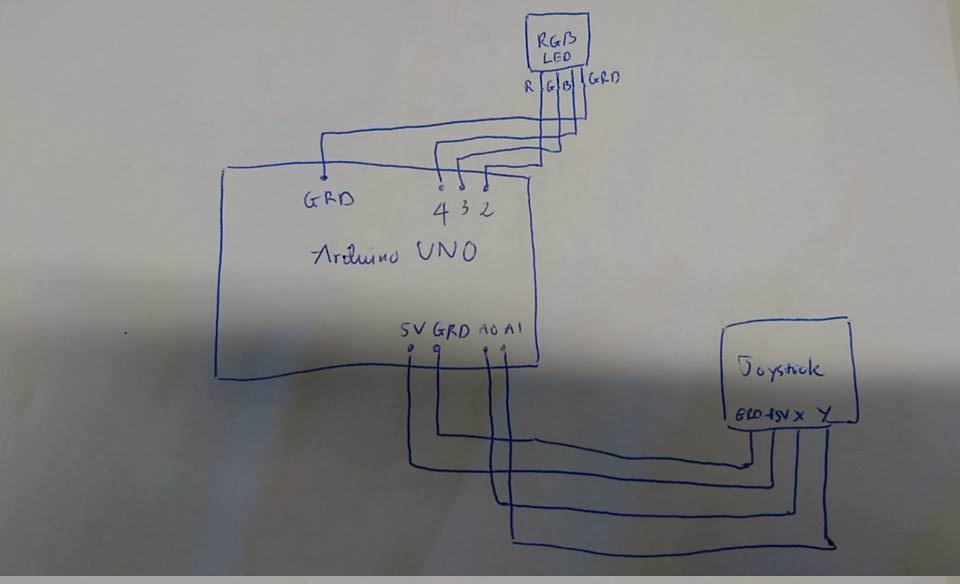 RGB
LED
R G B GRD
GRD
4 3 2
Arduino UNO
5V GRD A0 A1
Joystick
GRD +5V X Y